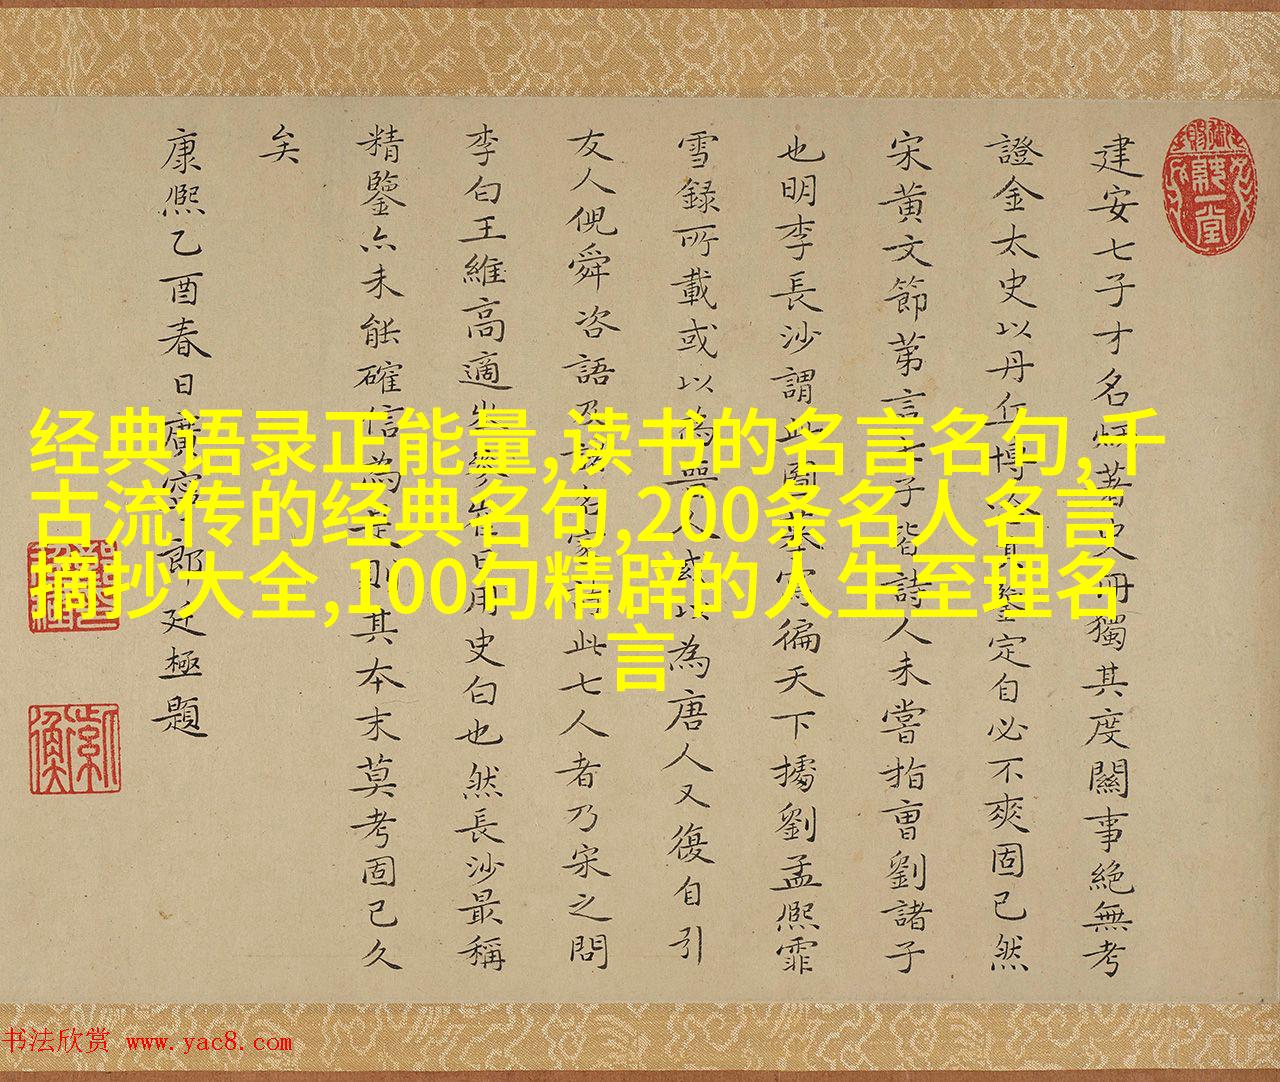 建安七子才名炳著史冊獨其度關事絕無考
證金太史以丹丘博鑒定自必不爽固已然
宋黃文節第言七子皆詩人未嘗指曹劉諸子
也明李長沙謂此圖徧天下據劉孟熙霏
雪錄所載或以為人或以為唐人又復自引
友人倪舜咨語及此七人者乃宋之問
李白王維高適崔日用史白也然長沙最稱
精鑒亦未能確信為則其本末莫考固已久
矣
康熙乙酉春日廣寧郎廷極題
经典语录正能量,读书的名言名句,千
古流传的经典名句,200条名人名言
摘抄大全,100句精辟的人生至理名
言
书法欣赏 www.yac8.com